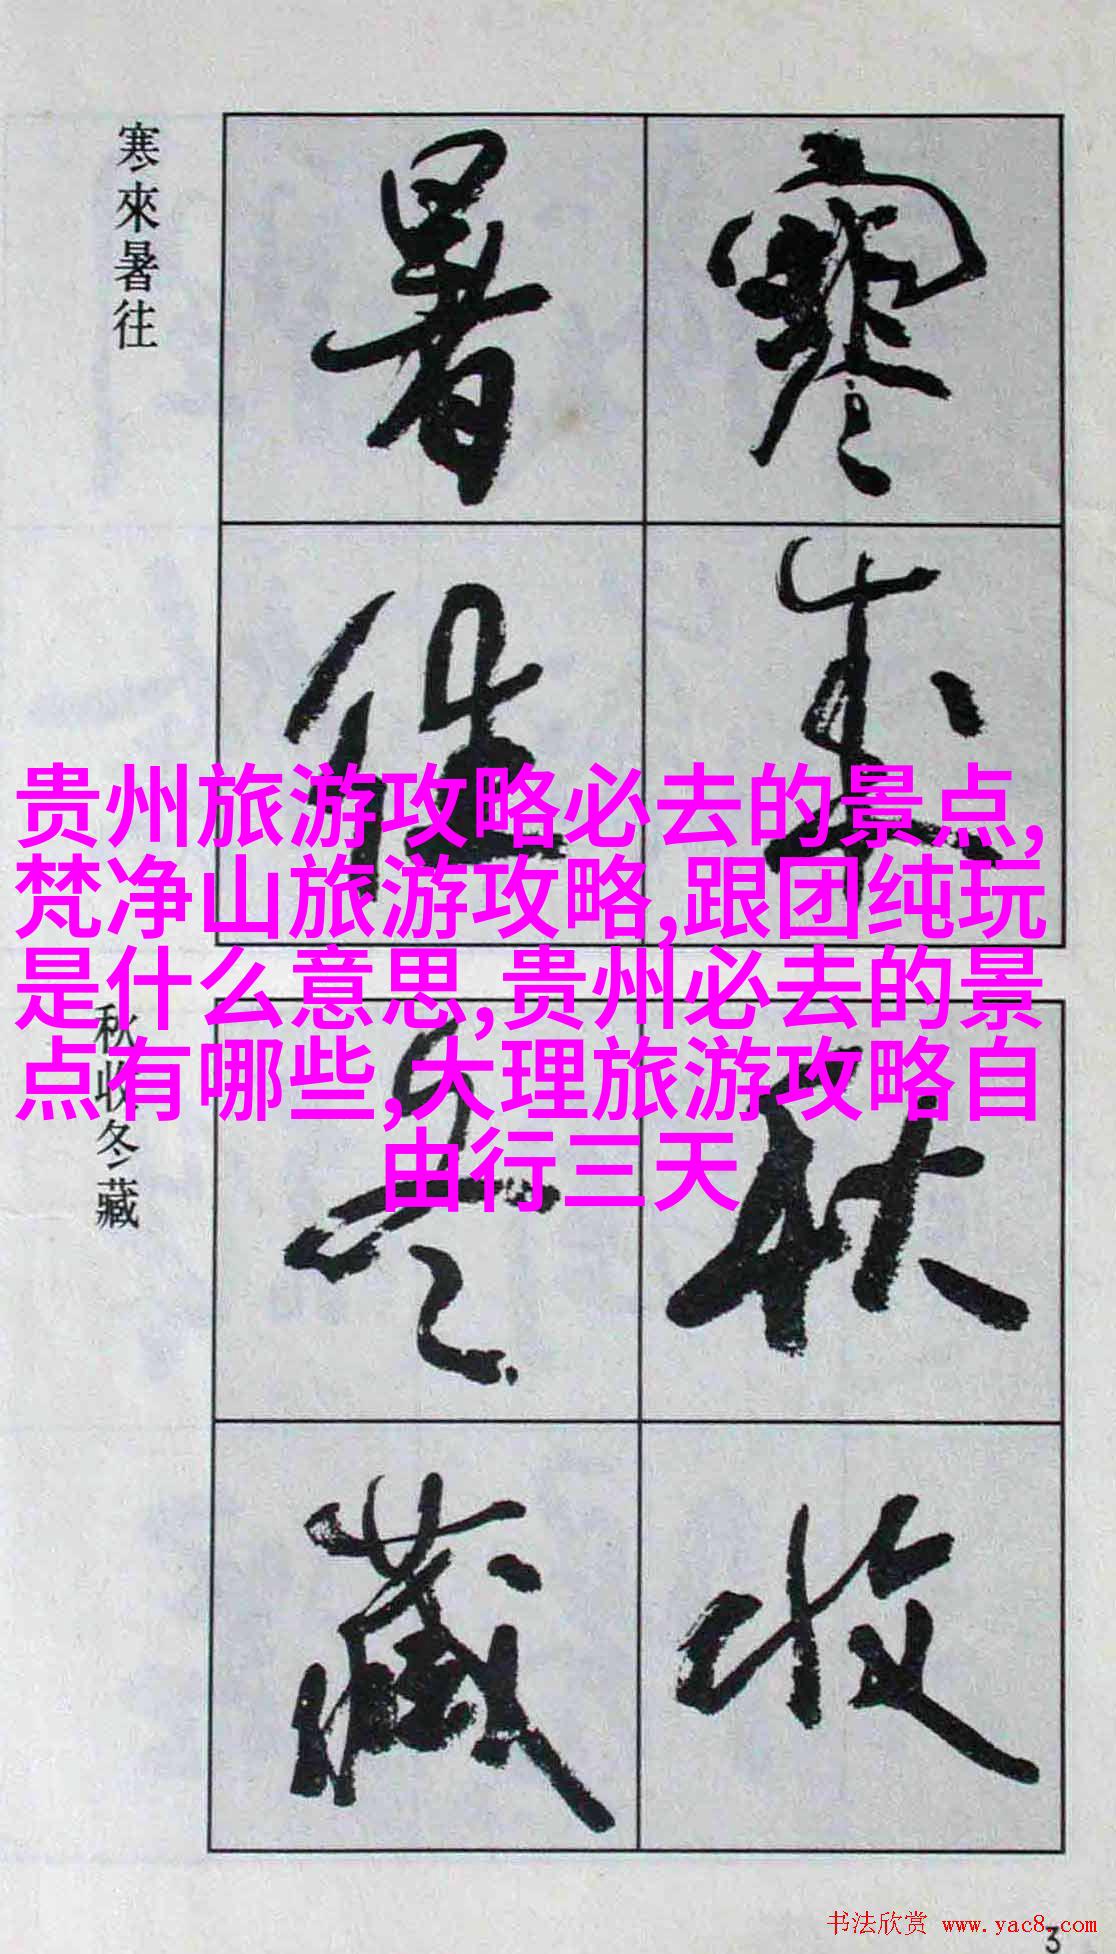 寒來暑往
寒來
暑往
贵州旅游攻略必去的景点,
梵净山旅游攻略,跟团纯玩
是什么意思,贵州必去的景
点有哪些,大理旅游攻略自
由行三天
秋收冬藏
秋收
冬藏
书法欣赏 www.yac8.com
3